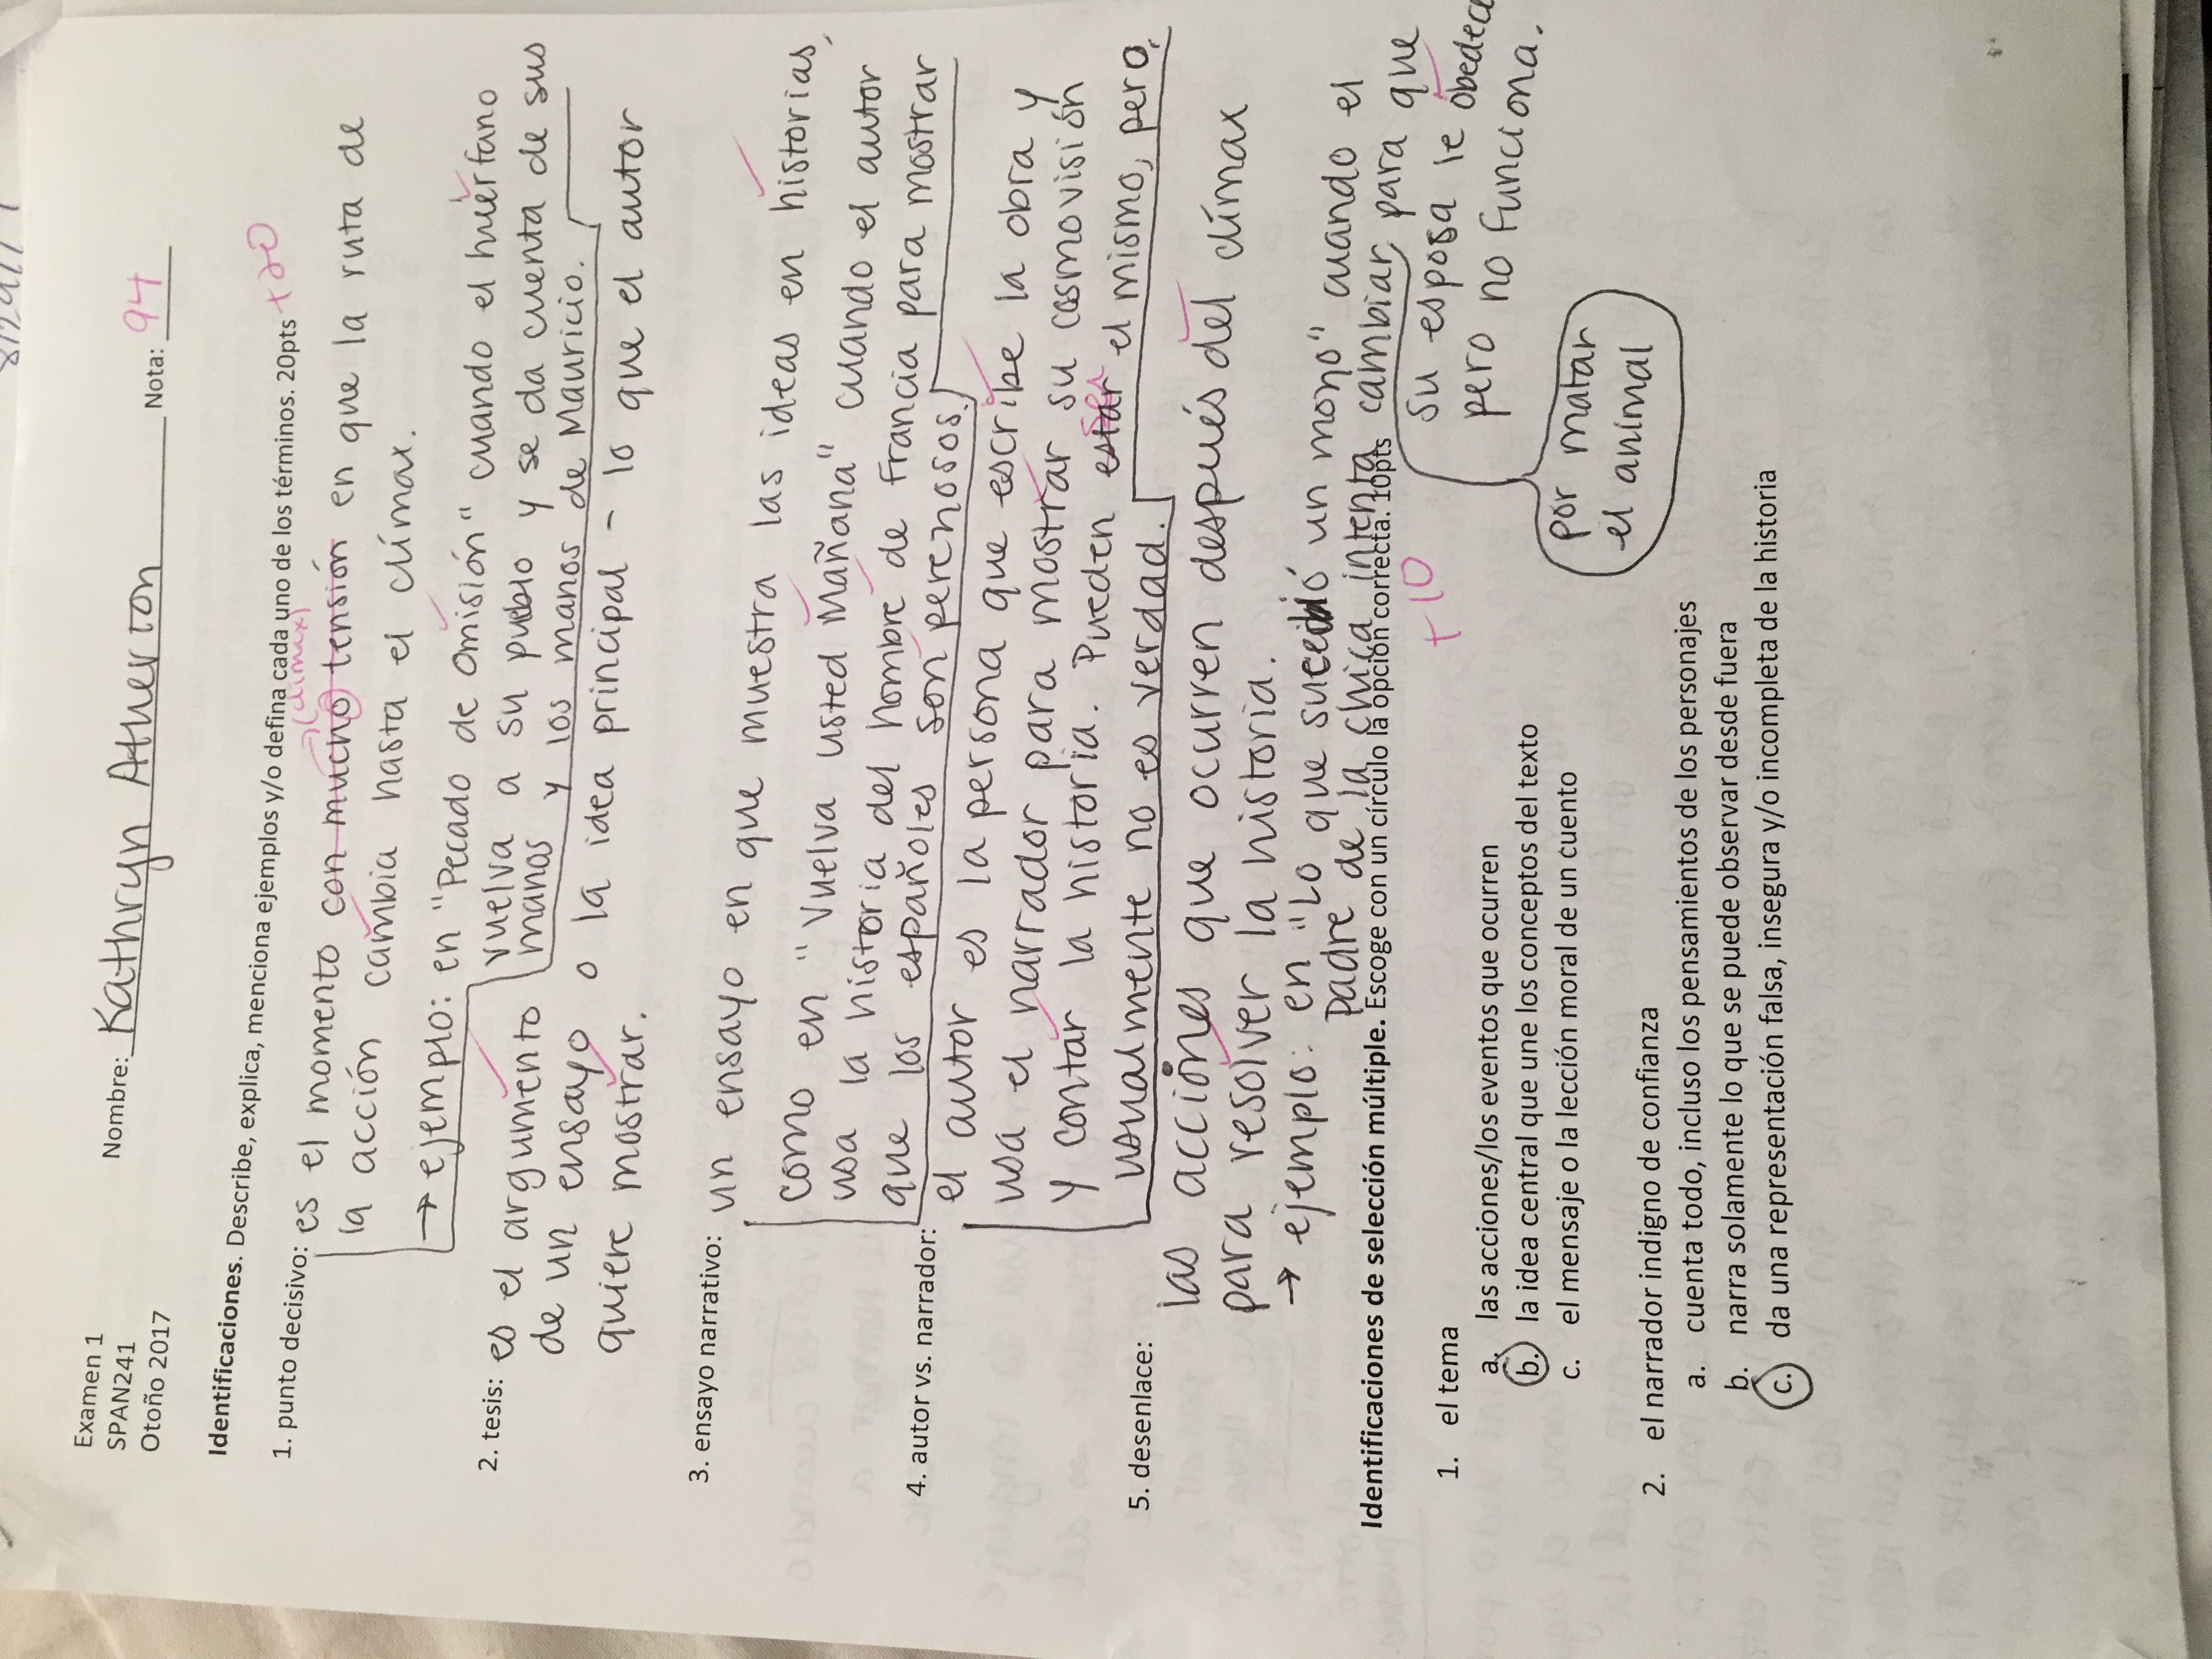 Examen 1
SPAN241
Otoño 2017
Nombre: Kathryn Atherton
Nota: 94
Identificaciones. Describe, explica, menciona ejemplos y/o defina cada uno de los términos. 20pts +20
1. punto decisivo: es el momento con mucho tensión en que la ruta de
→(climax)
la acción cambia hasta el clímax.
→ ejemplo: en "Pecado de Omisión" cuando el huérfano
vuelva a su pueblo y se da cuenta de sus
manos y los manos de Mauricio.
2. tesis: es el argumento
de un ensayo o la idea principal - lo que el autor
quiere mostrar.
3. ensayo narrativo: un ensayo en que muestra las ideas en historias,
como en "Vuelva usted Mañana" cuando el autor
usa la historia del hombre de Francia para mostrar
que los españoles son perenosos.
4. autor vs. narrador:
el autor es la persona que escribe la obra y
usa el narrador para mostrar su cosmovisión
y contar la historia. Pueden estar ser el mismo, pero,
usualmente no es verdad.
5. desenlace:
las acciones que ocurren después del clímax
para resolver la historia.
→ ejemplo: en "Lo que sucedió un mozo" cuando el
padre de la chica intenta cambiar para que
su esposa le obedece
pero no funciona.
por matar
el animal
Identificaciones de selección múltiple. Escoge con un círculo la opción correcta. 10pts
+10
1. el tema
a. las acciones/los eventos que ocurren
b. la idea central que une los conceptos del texto
c. el mensaje o la lección moral de un cuento
2. el narrador indigno de confianza
a. cuenta todo, incluso los pensamientos de los personajes
b. narra solamente lo que se puede observar desde fuera
c. da una representación falsa, insegura y/o incompleta de la historia